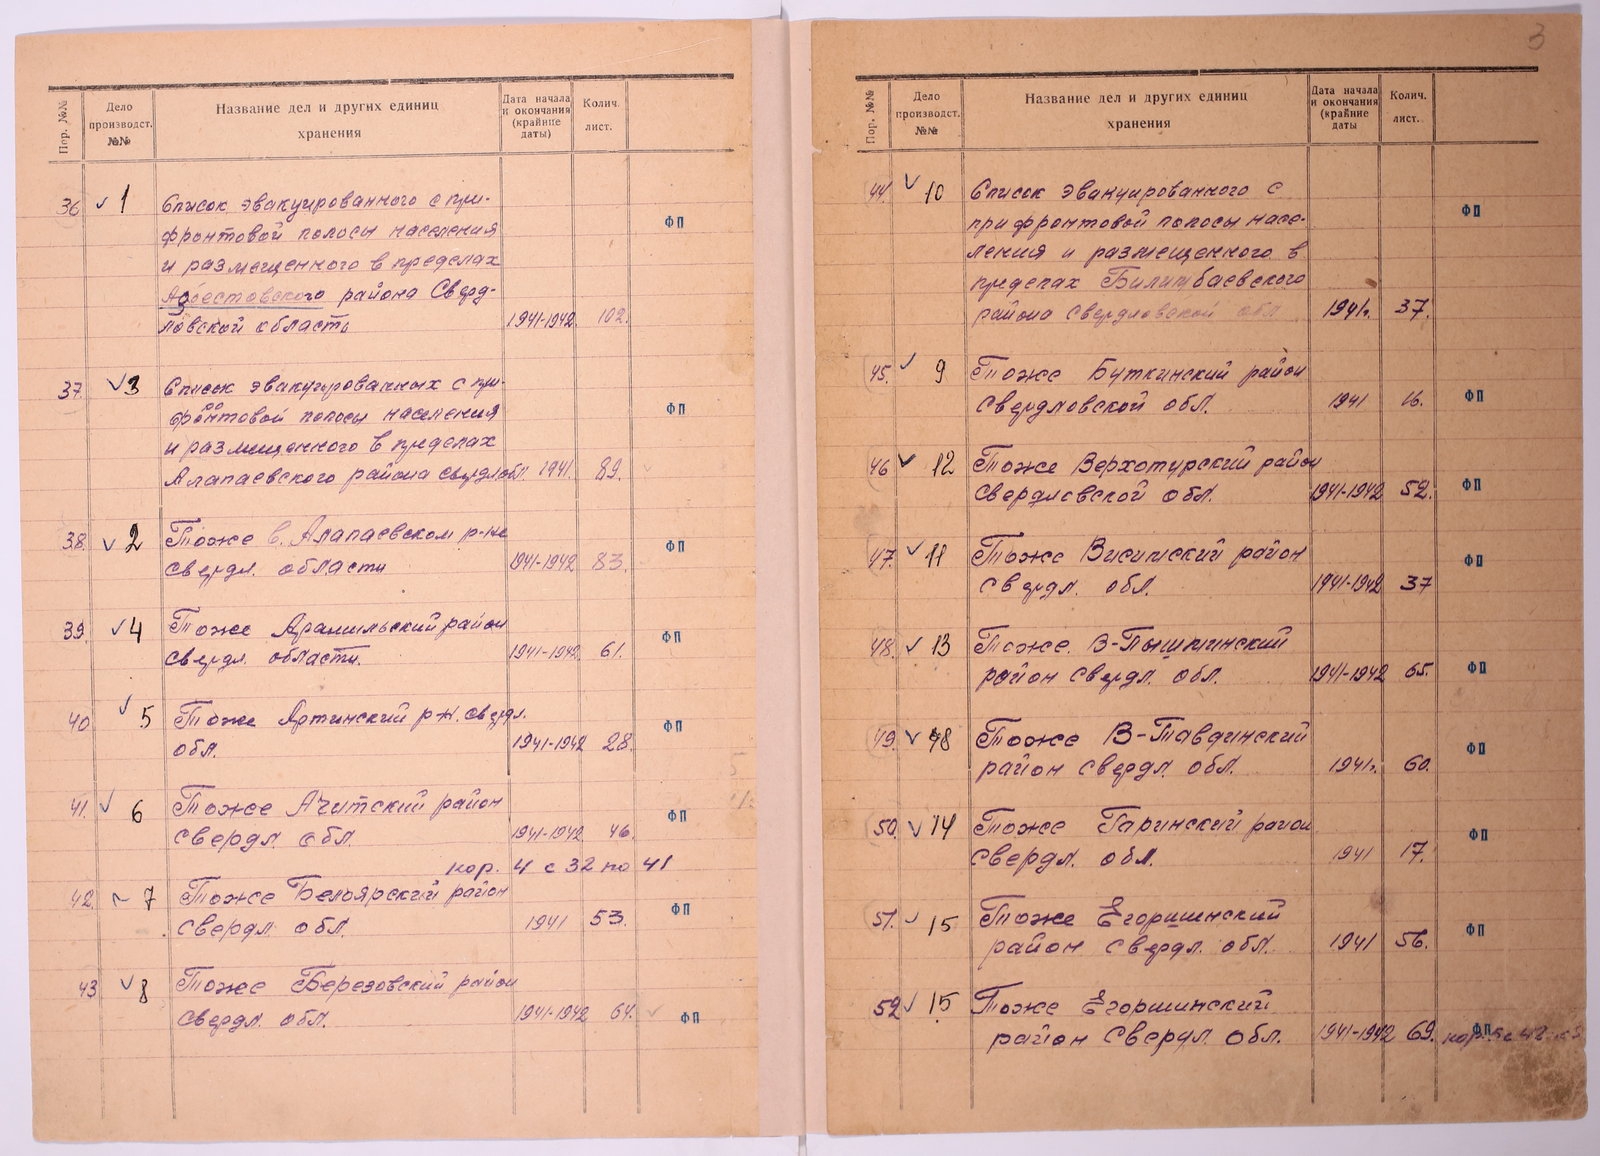 Пор. №№
Дело производст. №№
Название дел и других единиц хранения
Дата начала и окончания (крайние даты)
Колич. лист.
36 ✓ 1 Список эвакуированного с при-
фронтовой полосы населения
ФП
и размещенного в пределах
Асбестовского района Сверд-
ловской область 1941-1942 102.
37. ✓ 3 Список эвакуированных с при-
фронтовой полосы населения
ФП
и размещенного в пределах
Алапаевского района Свердл обл. 1941. 89.
38. ✓ 2 Тоже в. Алапаевском р-не
ФП
Свердл. области 1941-1942 83.
39. ✓ 4 Тоже Арамильский район
ФП
Свердл. области. 1941-1942 61.
40 ✓ 5 Тоже Артинский р-н. Свердл.
ФП
обл. 1941-1942 28.
41. ✓ 6 Тоже Ачитский район
ФП
Свердл. обл. 1941-1942 46.
кор. 4 с 32 по 41
42. 7 Тоже Белоярский район
ФП
Свердл. обл. 1941 53.
43 ✓ 8 Тоже Березовский район
Свердл. обл. 1941-1942 64.
ФП
3
Пор. №№
Дело производст. №№
Название дел и других единиц хранения
Дата начала и окончания (крайние даты
Колич. лист.
44. ✓ 10 Список эвакуированного с
прифронтовой полосы насе-
ФП
ления и размещенного в
пределах Билимбаевского
района Свердловской обл 1941г. 37.
45. ✓ 9 Тоже Буткинский район
Свердловской обл. 1941 16.
ФП
46 ✓ 12 Тоже Верхотурский район
Свердловской обл. 1941-1942 52.
ФП
47. ✓ 11 Тоже Висимский район
ФП
Свердл. обл. 1941-1942 37
48. ✓ 13 Тоже. В-Пышминский
район Свердл. обл. 1941-1942 65.
ФП
49. ✓ 48 Тоже В-Тавдинский
ФП
район Свердл. обл. 1941г. 60.
50. ✓ 14 Тоже Гаринский район
ФП
Свердл. обл. 1941 17.
51. ✓ 15 Тоже Егоршинский
ФП
район Свердл. обл. 1941 56.
52 ✓ 15 Тоже Егоршинский
ФП
район Свердл. обл. 1941-1942 69. кор. 5 с 42